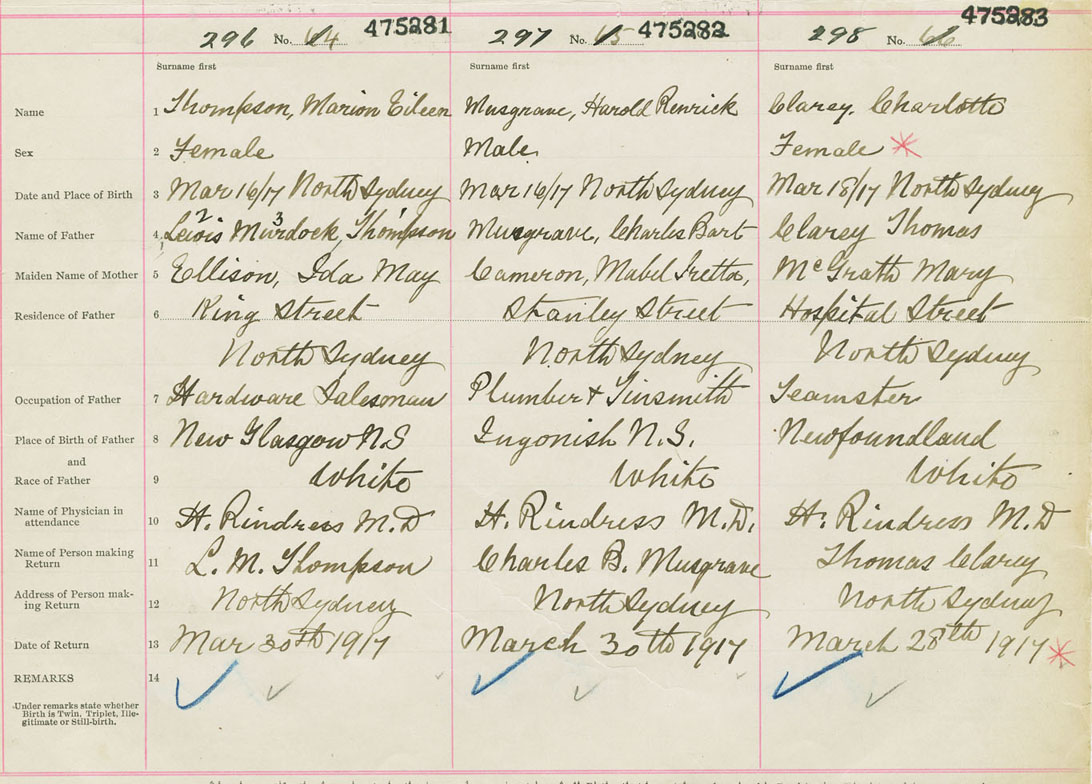 296 No. 64 475281 297 No. 65 475282 298 No. 66 475283
Surname first Surname first Surname first
Name 1 Thompson, Marion Eileen Musgrave, Harold Renrick Clarey, Charlotte
Sex 2 Female Male Female *
Date and Place of Birth 3 Mar 16/17 North Sydney Mar 16/17 North Sydney Mar 18/17 North Sydney
2 3 1
Name of Father 4 Lewis Murdock, Thompson Musgrave, Charles Bart Clarey Thomas
Maiden Name of Mother 5 Ellison, Ida May Cameron, Mabel Iretta, McGrath Mary
Residence of Father 6 King Street Stanley Street Hospital Street
North Sydney North Sydney North Sydney
Occupation of Father 7 Hardware Salesman Plumber & Tinsmith Teamster
Place of Birth of Father 8 New Glasgow N.S Ingonish N.S. Newfoundland
and
Race of Father 9 White White White
Name of Physician in
attendance 10 H. Rindress M.D H. Rindress M.D. H. Rindress M.D
Name of Person making
Return 11 L. M. Thompson Charles B. Musgrave Thomas Clarey
Address of Person mak-
ing Return 12 North Sydney North Sydney North Sydney
Date of Return 13 Mar 30th 1917 March 30th 1917 March 28th 1917 *
REMARKS 14
Under remarks state whether
Birth is Twin, Triplet, Ille-
gitimate or Still-birth.